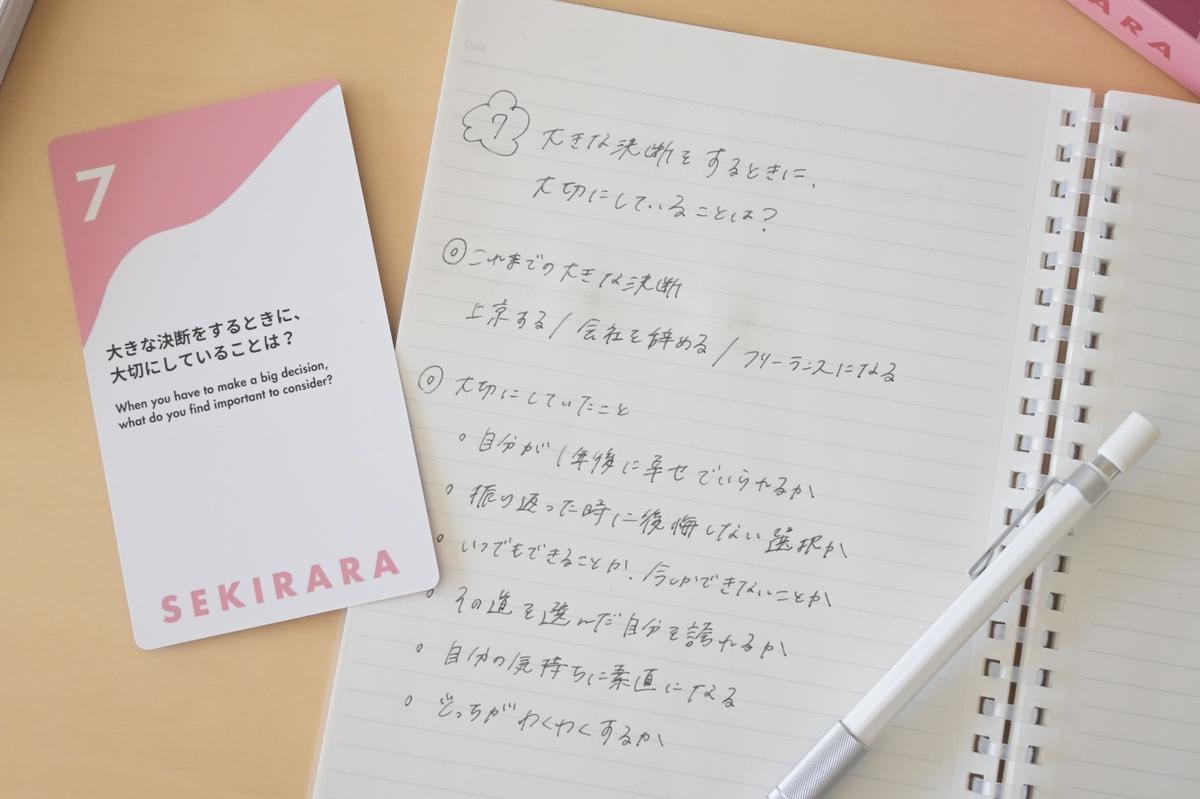 7
大きな決断をするときに、
大切にしていることは？
When you have to make a big decision,
what do you find important to consider?
SEKIRARA
Date
7 大きな決断をするときに、
大切にしていることは？
◎これまでの大きな決断
上京する/会社を辞める/フリーランスになる
◎大切にしていたこと
◦自分が1年後に幸せでいられるか
◦振り返った時に後悔しない選択か
◦いつでもできることか、今しかできないことか
◦その道を選んだ自分を誇れるか
◦自分の気持ちに素直になる
◦どっちがわくわくするか
ARA